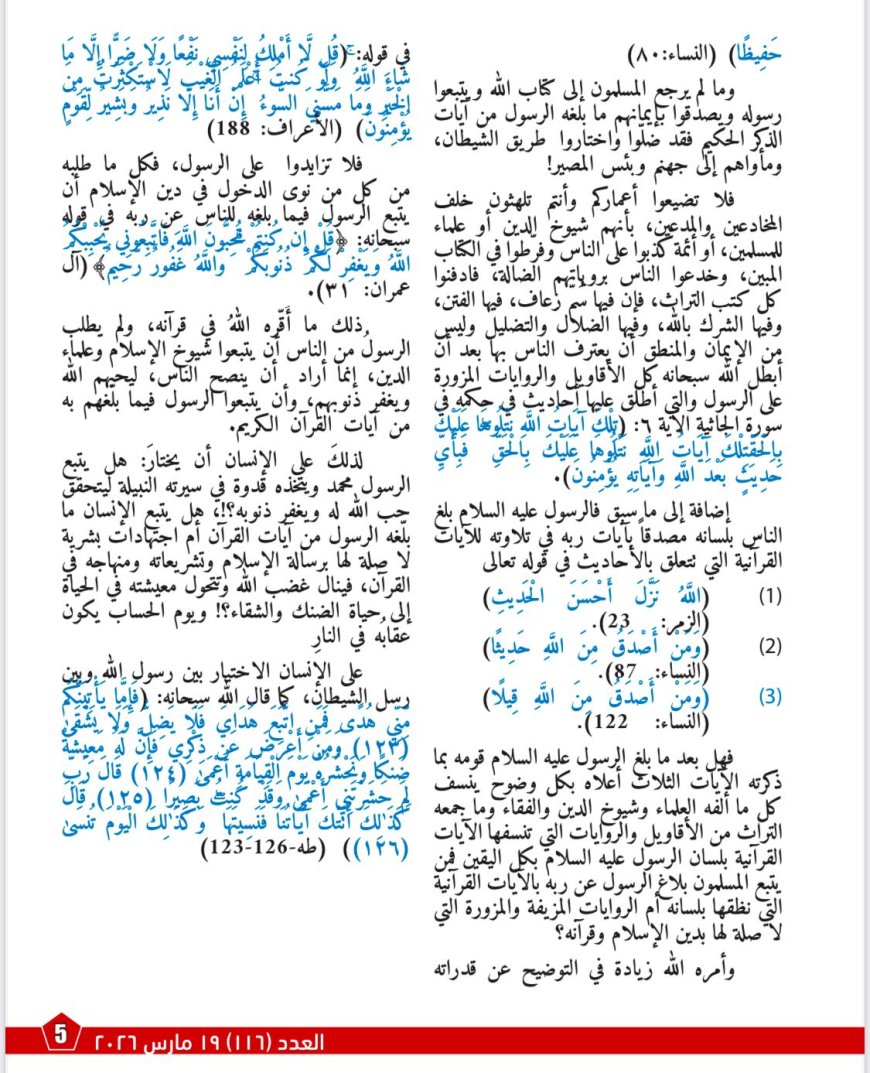 حَفِيظًا) (النساء:٨٠)
وما لم يرجع المسلمون إلى كتاب الله ويتبعوا
رسوله ويصدقوا بإيمانهم ما بلغه الرسول من آيات
الذكر الحكيم فقد ضلّوا واختاروا طريق الشيطان،
ومأواهم إلى جهنم وبئس المصير!
فلا تضيعوا أعماركم وأنتم تلهثون خلف
المخادعين والمدعين، بأنهم شيوخ الدين أو علماء
للمسلمين، أو أئمة كذبوا على الناس وفرّطوا في الكتاب
المبين، وخدعوا الناس بروياتهم الضالة، فادفنوا
كل كتب التراث، فإن فيها سُم زعاف، فيها الفتن،
وفيها الشرك بالله، وفيها الضلال والتضليل وليس
من الإيمان والمنطق أن يعترف الناس بها بعد أن
أبطل الله سبحانه كل الأقاويل والروايات المزورة
على الرسول والتي أطلق عليها أحاديث في حكمه في
سورة الجاثية الآية ٦: (تِلْكَ آيَاتُ اللَّهِ نَتْلُوهَا عَلَيْكَ
بِالْحَقِّتِلْكَ آيَاتُ اللَّهِ نَتْلُوهَا عَلَيْكَ بِالْحَقِّ ۖ فَبِأَيِّ
حَدِيثٍ بَعْدَ اللَّهِ وَآيَاتِهِ يُؤْمِنُونَ).
إضافة إلى ما سبق فالرسول عليه السلام بلغ
الناس بلسانه مصدقاً بآيات ربه في تلاوته للآيات
القرآنية التي تتعلق بالأحاديث في قوله تعالى
(1) (اللَّهُ نَزَّلَ أَحْسَنَ الْحَدِيثِ)
(الزمر: 23).
(2) (وَمَنْ أَصْدَقُ مِنَ اللَّهِ حَدِيثًا)
(النساء: 87).
(3) (وَمَنْ أَصْدَقُ مِنَ اللَّهِ قِيلًا)
(النساء: 122).
فهل بعد ما بلغ الرسول عليه السلام قومه بما
ذكرته الآيات الثلاث أعلاه بكل وضوح ينسف
كل ما ألفه العلماء وشيوخ الدين والفقاء وما جمعه
التراث من الأقاويل والروايات التي تنسفها الآيات
القرآنية بلسان الرسول عليه السلام بكل اليقين فمن
يتبع المسلمون بلاغ الرسول عن ربه بالآيات القرآنية
التي نظقها بلسانه أم الروايات المزيفة والمزورة التي
لا صلة لها بدين الإسلام وقرآنه؟
وأمره الله زيادة في التوضيح عن قدراته
في قوله: (قُل لَّا أَمْلِكُ لِنَفْسِي نَفْعًا وَلَا ضَرًّا إِلَّا مَا
شَاءَ اللَّهُ ۚ وَلَوْ كُنتُ أَعْلَمُ الْغَيْبَ لَاسْتَكْثَرْتُ مِنَ
الْخَيْرِ وَمَا مَسَّنِيَ السُّوءُ ۚ إِنْ أَنَا إِلَّا نَذِيرٌ وَبَشِيرٌ لِّقَوْمٍ
يُؤْمِنُونَ) (الأعراف: 188)
فلا تزايدوا على الرسول، فكل ما طلبه
من كل من نوى الدخول في دين الإسلام أن
يتبع الرسول فيما بلغه للناس عن ربه في قوله
سبحانه: ﴿قُلْ إِن كُنتُمْ تُحِبُّونَ اللَّهَ فَاتَّبِعُونِي يُحْبِبْكُمُ
اللَّهُ وَيَغْفِرْ لَكُمْ ذُنُوبَكُمْ ۗ وَاللَّهُ غَفُورٌ رَّحِيمٌ﴾ (آل
عمران: ٣١).
ذلك ما أقّره اللهُ في قرآنه، ولم يطلب
الرسولُ من الناس أن يتبعوا شيوخ الإسلام وعلماء
الدين، إنما أراد أن ينصح الناس، ليحبهم الله
ويغفر ذنوبهم، وأن يتبعوا الرسول فيما بلغهم به
من آيات القرآن الكريم.
لذلكَ على الإنسان أن يختارَ: هل يتبع
الرسول محمد ويتخذه قدوة في سيرته النبيلة ليتحقق
حب الله له ويغفر ذنوبه؟!، هل يتبع الإنسان ما
بلّغه الرسول من آيات القرآن أم اجتهادات بشرية
لا صلة لها برسالة الإسلام وتشريعاته ومنهاجه في
القرآن، فينال غضب الله وتتحول معيشته في الحياة
إلى حياة الضنك والشقاء؟! ويوم الحساب يكون
عقابُه في النارِ
على الإنسان الاختيار بين رسول الله وبين
رسل الشيطان، كما قال الله سبحانه: (فَإِمَّا يَأْتِيَنَّكُم
مِّنِّي هُدًى فَمَنِ اتَّبَعَ هُدَايَ فَلَا يَضِلُّ وَلَا يَشْقَىٰ
(١٢٣) وَمَنْ أَعْرَضَ عَن ذِكْرِي فَإِنَّ لَهُ مَعِيشَةً
ضَنكًا وَنَحْشُرُهُ يَوْمَ الْقِيَامَةِ أَعْمَىٰ (١٢٤) قَالَ رَبِّ
لِمَ حَشَرْتَنِي أَعْمَىٰ وَقَدْ كُنتُ بَصِيرًا (١٢٥) قَالَ
كَذَٰلِكَ أَتَتْكَ آيَاتُنَا فَنَسِيتَهَا ۖ وَكَذَٰلِكَ الْيَوْمَ تُنسَىٰ
(١٢٦)) (طه-126-123)
العدد (١١٦) ١٩ مارس ٢٠٢٦
5